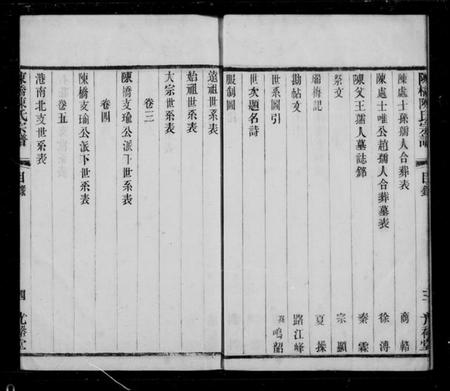 陳橋陳氏宗譜 目錄 三
陳處士孫孺人合葬表 商輅
陳處士唯公趙孺人合葬墓表 徐溥
陳父王孺人墓誌銘 秦霖
祭文 宗顯
瑞梅記 夏㙅
勘帖文 路江峰
世系圖引 鳴韶
世次題名詩
服制圖
遠祖世系表
始祖世系表
大宗世系表
卷三
陳橋支瑜公派下世系表
卷四
陳橋支瑜公派下世系表
卷五
港南北支世系表
陳橋陳氏宗譜 目錄 四 光裕堂